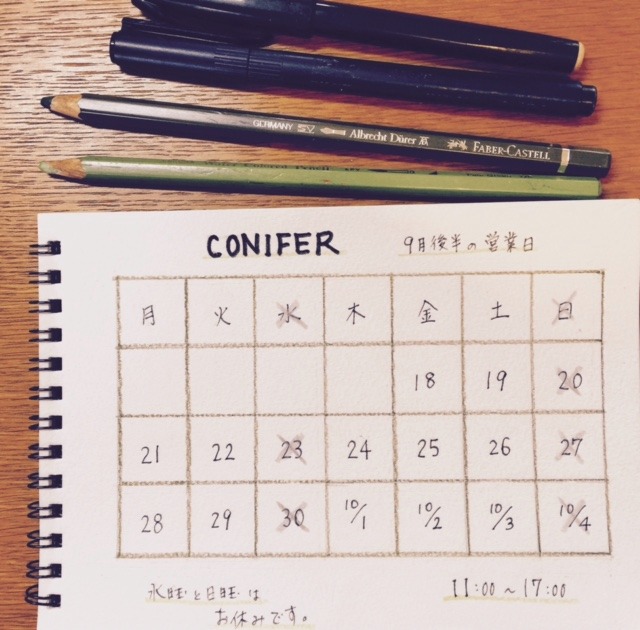 GERMANY Albrecht Dürer FABER-CASTELL
CONIFER 9月後半の営業日
月 火 水 木 金 土 日
18 19 20
21 22 23 24 25 26 27
28 29 30 10/1 10/2 10/3 10/4
水曜と日曜は
お休みです。
11:00～17:00